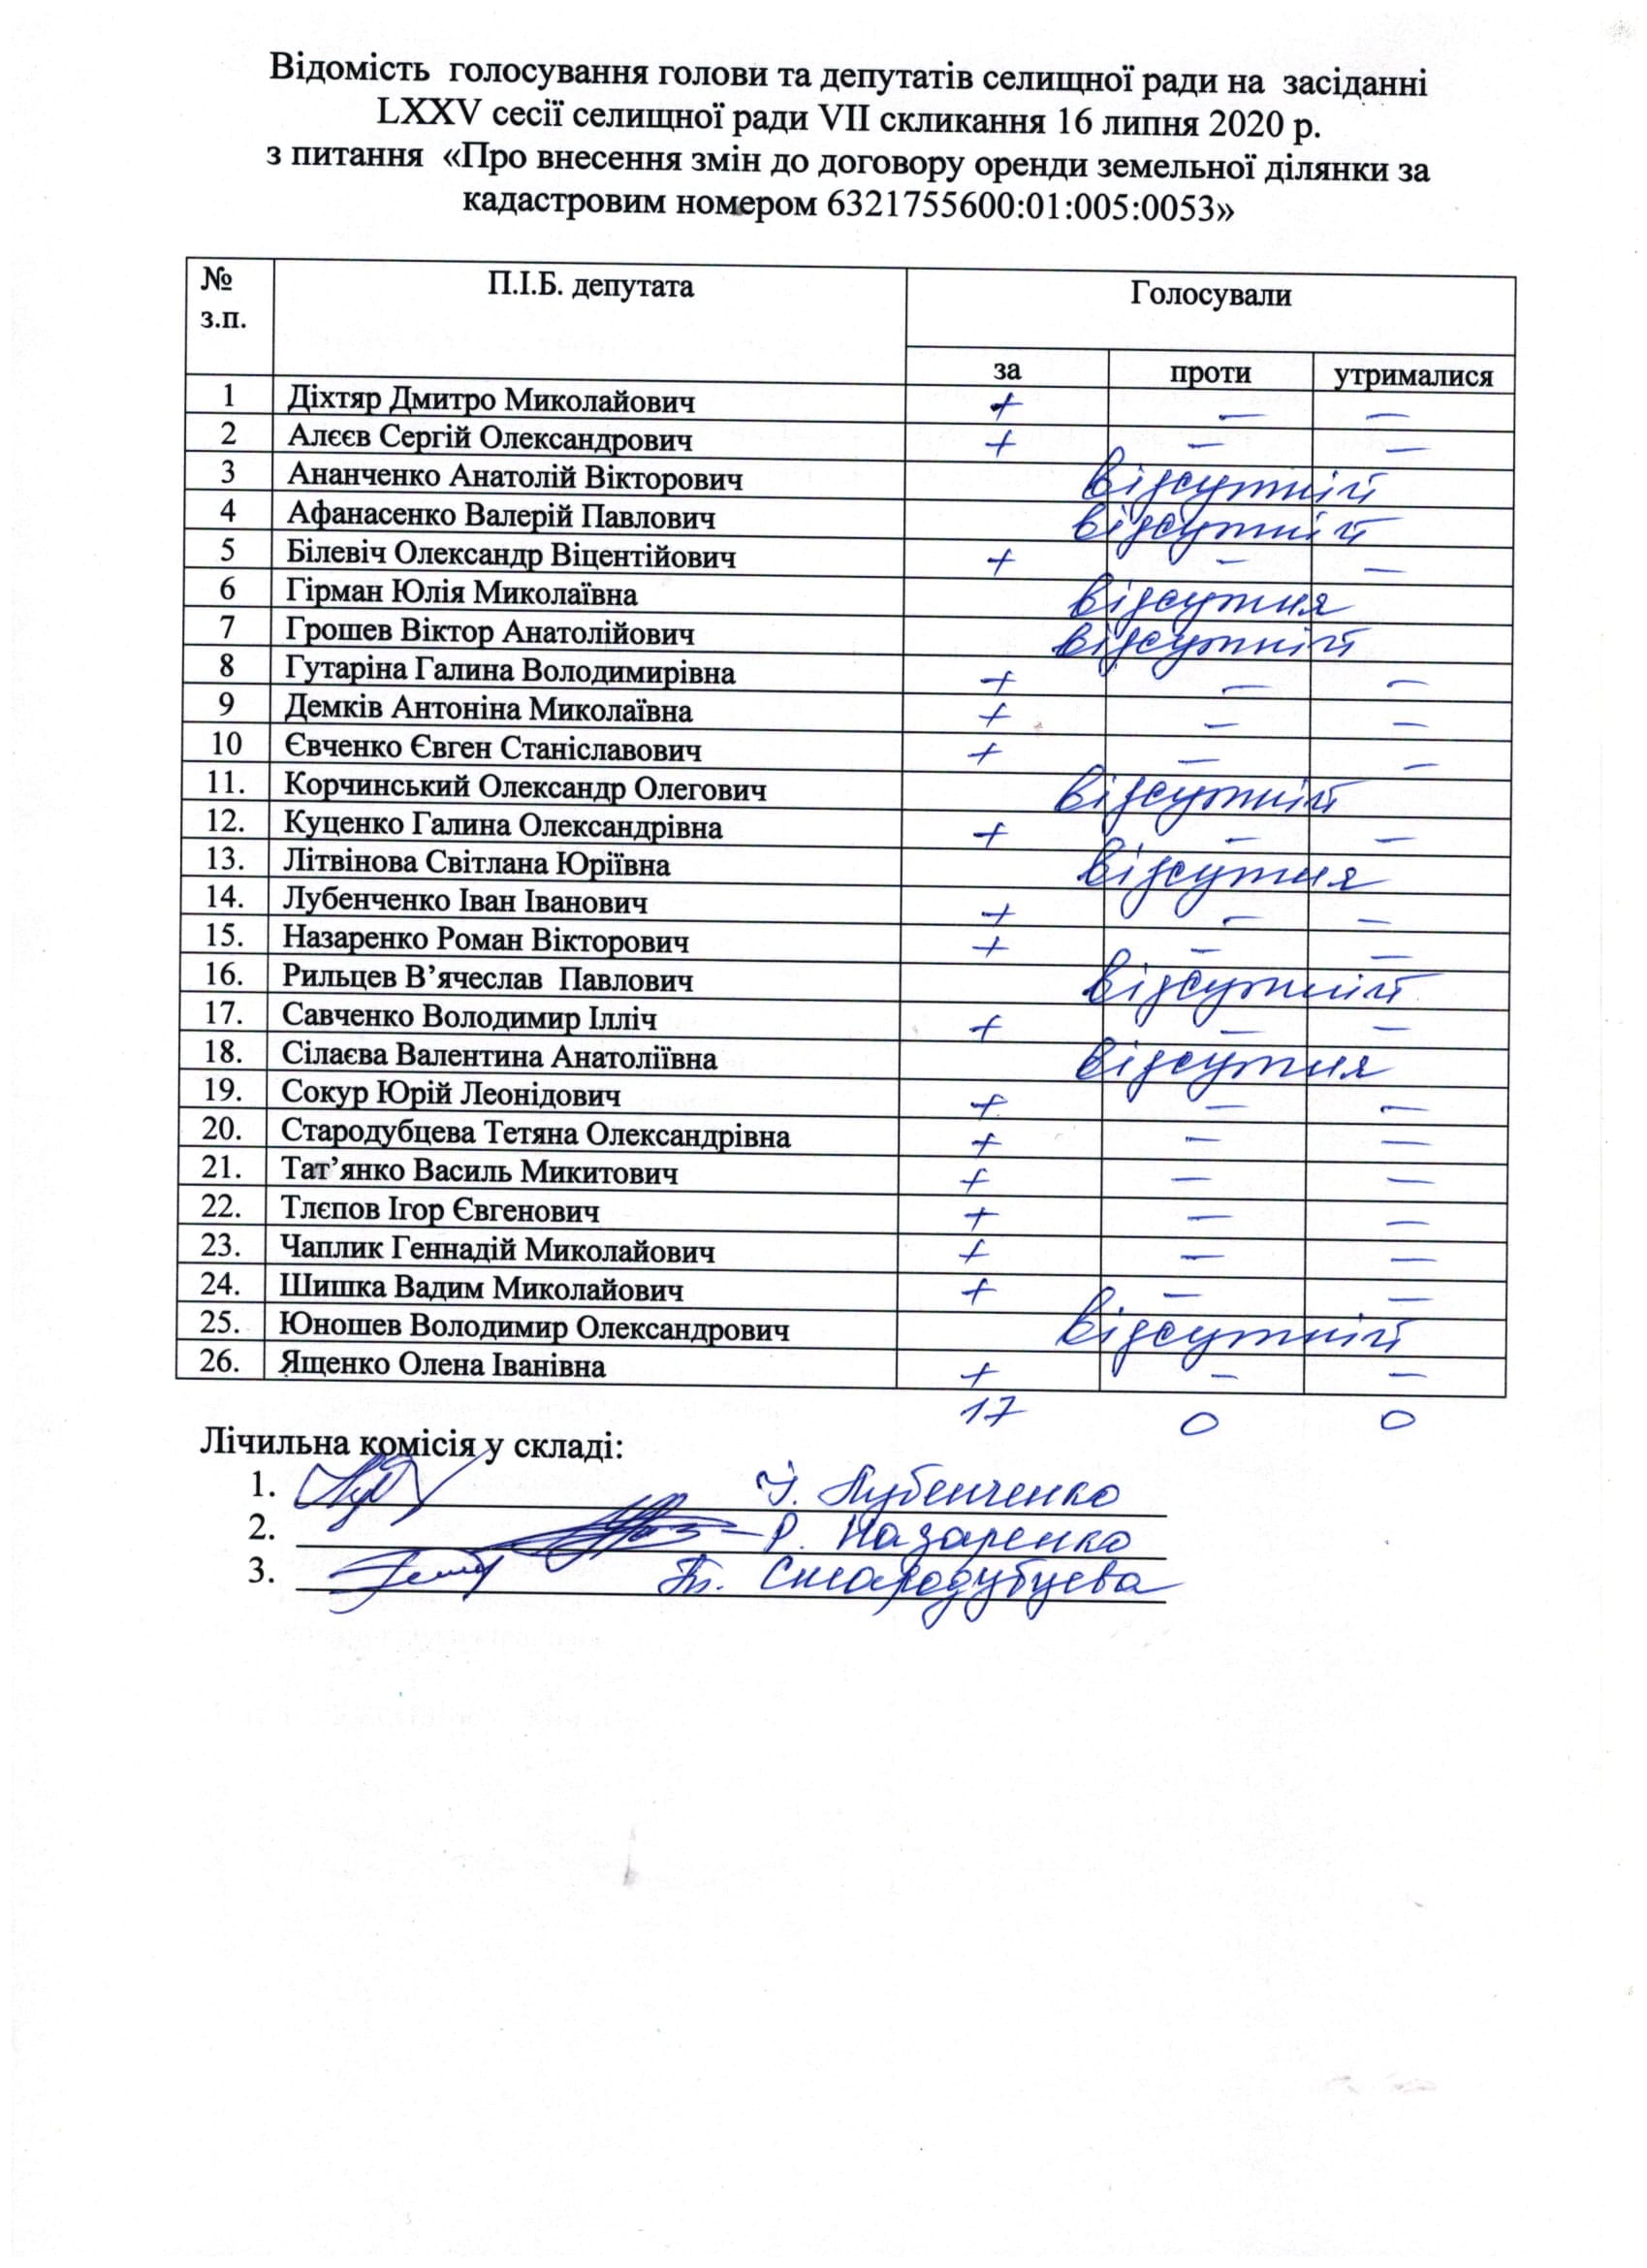 Відомість голосування голови та депутатів селищної ради на засіданні
LXXV сесії селищної ради VII скликання 16 липня 2020 р.
з питання «Про внесення змін до договору оренди земельної ділянки за
кадастровим номером 6321755600:01:005:0053»
№ з.п. П.І.Б. депутата Голосували
за проти утрималися
1 Діхтяр Дмитро Миколайович + – –
2 Алєєв Сергій Олександрович + – –
3 Ананченко Анатолій Вікторович відсутній
4 Афанасенко Валерій Павлович відсутній
5 Білевіч Олександр Віцентійович + – –
6 Гірман Юлія Миколаївна відсутня
7 Грошев Віктор Анатолійович відсутній
8 Гутаріна Галина Володимирівна + – –
9 Демків Антоніна Миколаївна + – –
10 Євченко Євген Станіславович + – –
11. Корчинський Олександр Олегович відсутній
12. Куценко Галина Олександрівна + – –
13. Літвінова Світлана Юріївна відсутня
14. Лубенченко Іван Іванович + – –
15. Назаренко Роман Вікторович + – –
16. Рильцев В’ячеслав Павлович відсутній
17. Савченко Володимир Ілліч + – –
18. Сілаєва Валентина Анатоліївна відсутня
19. Сокур Юрій Леонідович + – –
20. Стародубцева Тетяна Олександрівна + – –
21. Тат’янко Василь Микитович + – –
22. Тлєпов Ігор Євгенович + – –
23. Чаплик Геннадій Миколайович + – –
24. Шишка Вадим Миколайович + – –
25. Юношев Володимир Олександрович відсутній
26. Ященко Олена Іванівна + – –
17 0 0
Лічильна комісія у складі:
1. І. Лубенченко
2. Р. Назаренко
3. Т. Стародубцева